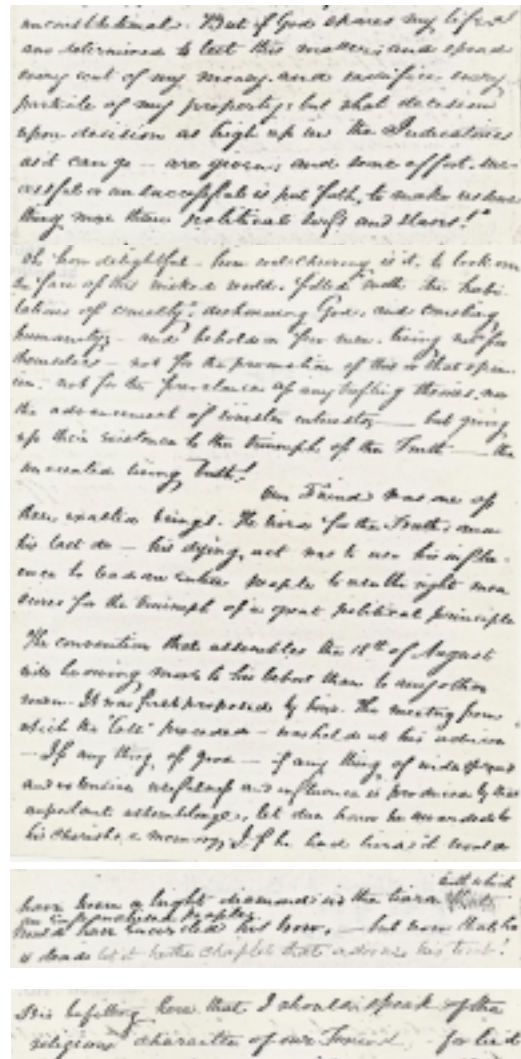 unconstitutional. But if God spares my life I
am determined to test this matter, and spend
every cent of my money, and sacrifice every
particle of my property; but what decision
upon decision as high up in the Judicatories
as it can go — are given, and some effort, suc-
cessful or unsuccessful is put forth, to make us some
thing more than political serfs and slaves!"
Oh how delightful — how soul-cheering is it, to look over
the face of this wicked world, filled with the habi-
tations of cruelty, dishonoring God, and crushing
humanity, and behold a few men, living not for
themselves — not for the promotion of this or that opin-
ion, not for the prevalence of any trifling theories, nor
the advancement of sinister interests — but giving
up their existence to the triumph of the Truth — the
uncreated living Truth!
Our Friend was one of
these exalted beings. He lived for the Truth; and
his last do — his dying act was to use his influ-
ence to lead an entire people to use the right mea
sures for the triumph of a great political principle
The convention that assembles the 18th of August
owing more to his labors than to any other
man. It was first proposed by him. The meeting from
which the "Call" proceeded — was held at his advice
— If any thing of good — if any thing of wide spread
and extensive usefulness and influence is produced by this
important assemblage, let due honor be awarded to
his cherished memory. If he had lived it would
have been a bright diamond in the tiara with which
an people
would have encircled his brow, — but now that he
is dead let it be the chaplet that adorns his tomb!
It is befitting here that I should speak of the
religious character of our Friend — for he